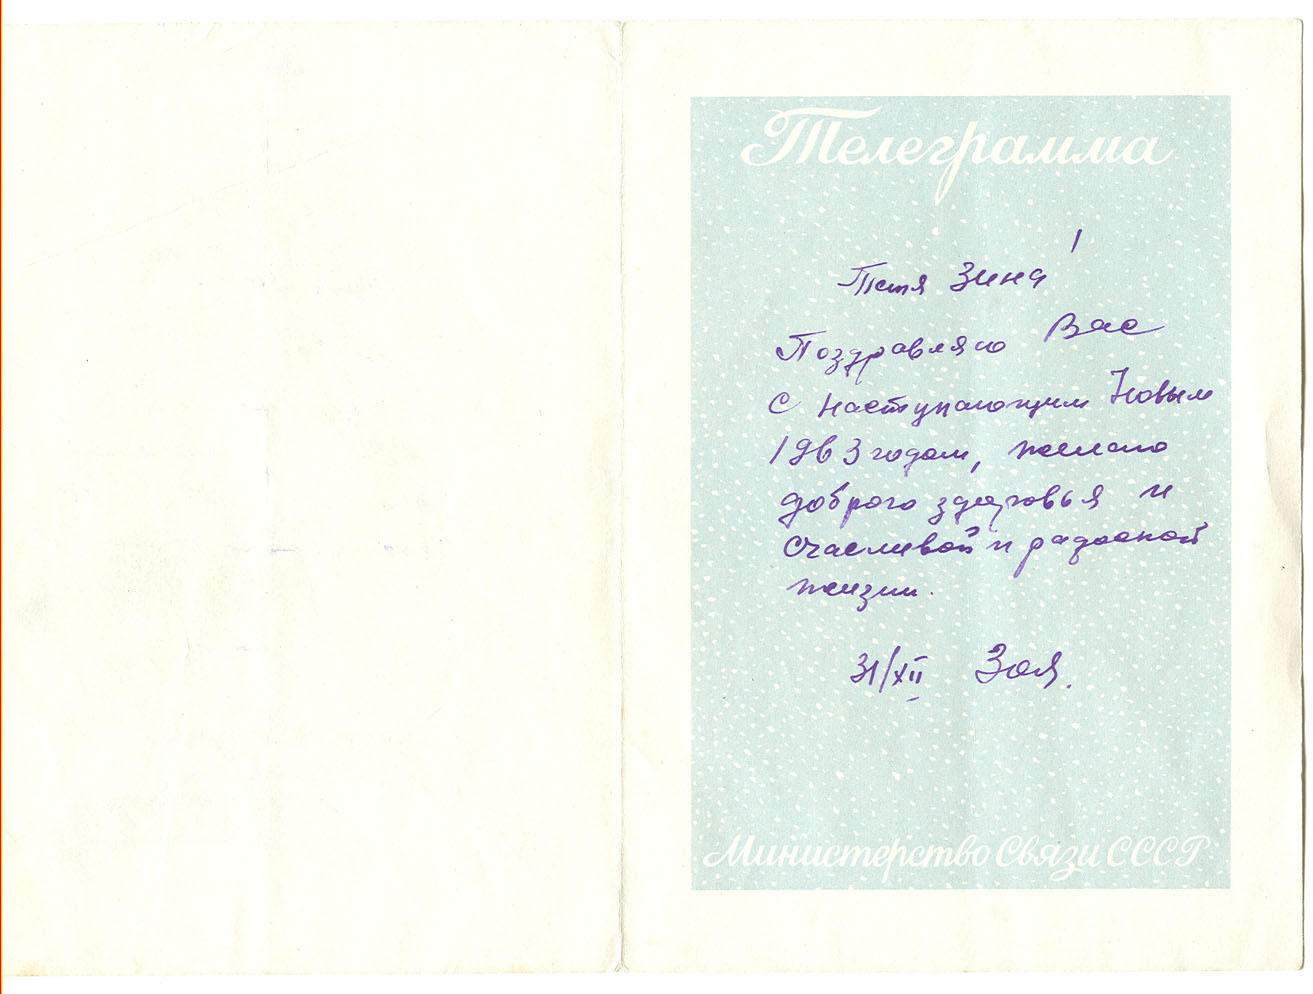 Телеграмма
Тетя Зина!
Поздравляю Вас
с наступающим Новым
1963 годом, желаю
доброго здоровья и
счасливой и радосной
жизни.
31/XII Зоя.
Министерство Связи СССР